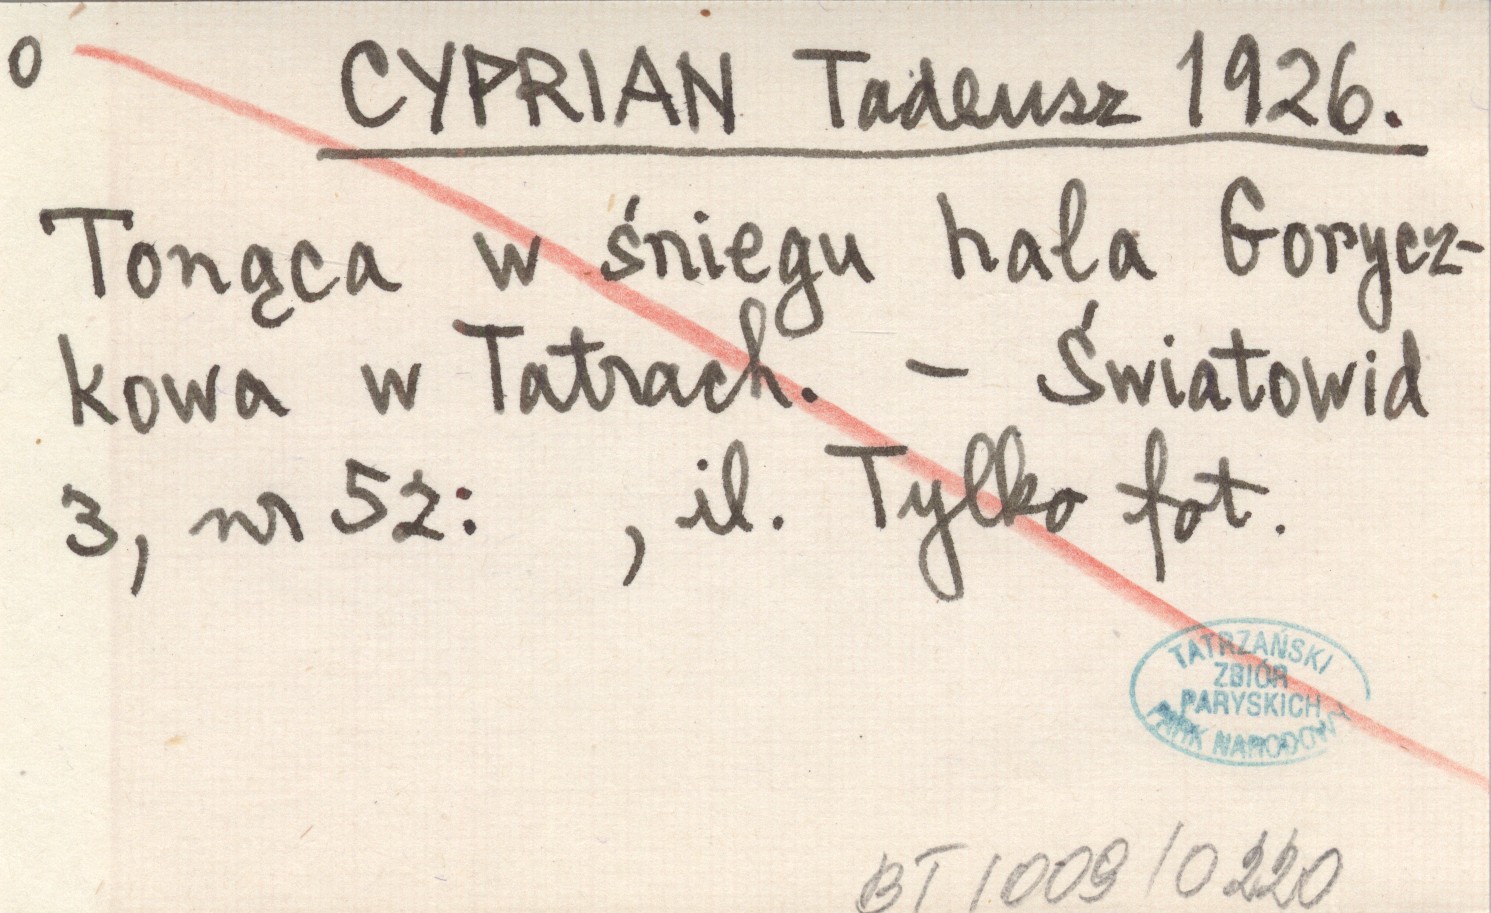 o CYPRIAN Tadeusz 1926.
Tonąca w śniegu hala Gorycz-
kowa w Tatrach. – Światowid
3, nr 52: , il. Tylko fot.
TATRZAŃSKI
ZBIÓR
PARYSKICH
PARK NARODOWY
BT 1009/0220